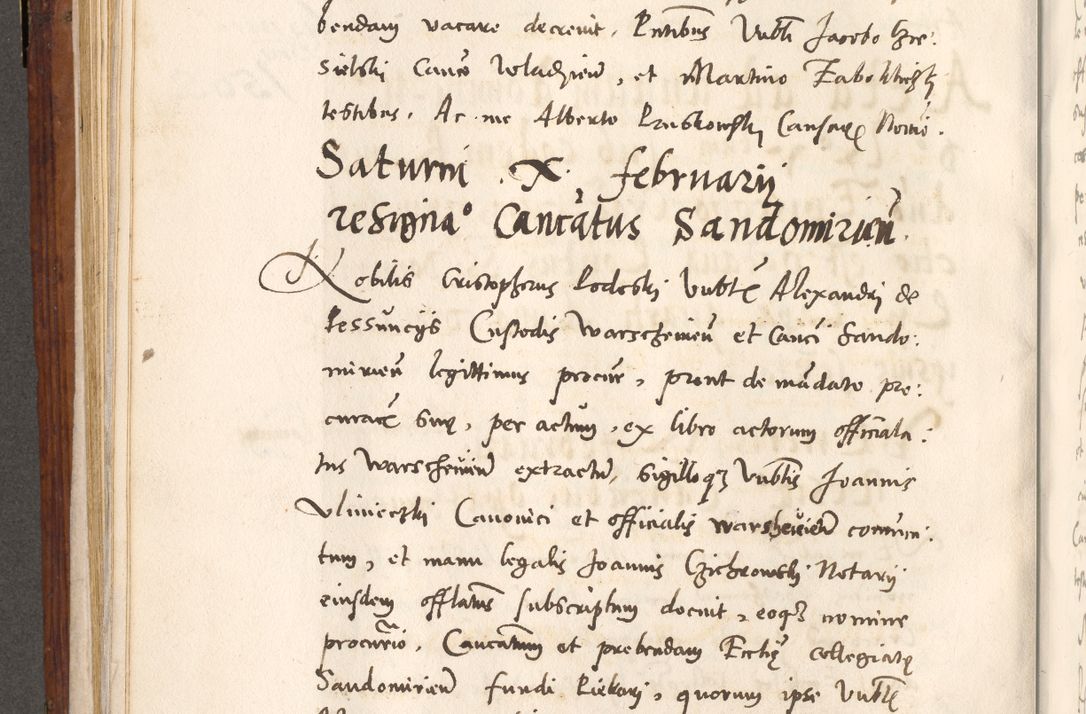 bendam vacare decrevit. Pntibus Vnbli Jacobo Bre:
sielski Canco Wladzien, et Martino Zabokliczkj
testibus. Ac me Alberto Pruskowskj Cansarę Notrio.
Saturni .X. februarij
resigna° Cancatus Sandomirien.
Nobilis Cristopherus Podoski Vnblis Alexandri de
Pessuncijs Custodis Warschevien et Canci Sando:
mirien legittimus procur, prout de mandato pro:
curatē suę, per actum, ex libro actorum officiala:
tus Warschevien extractu, sigilloqz Vnblis Joannis
Vlinieczki Canonici et officialis warschevien commun:
tum, et manu legalis Joannis Czichrowski Notarij
eiusdem offlatus subscriptum docuit, eoqz nomine
procurio, Cancatum et prebendam Ecclię collegiatę
Sandomirien fundi Piekarj, quorum ipse Vnblis